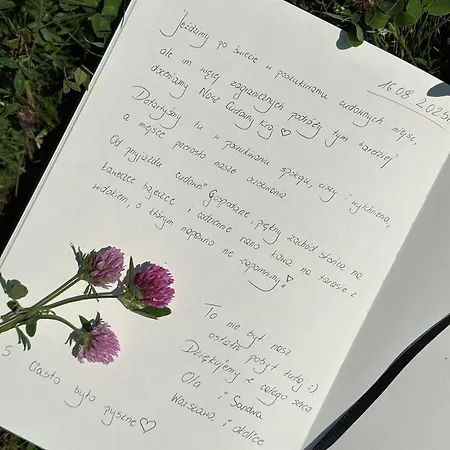 16.08.2025r.
Jeździmy po świecie w poszukiwaniu cudownych miejsc,
ale im więcej zagranicznych podróży tym bardziej
doceniamy Nasz Cudowny Kraj ♡
Dotarłyśmy tu w poszukiwaniu spokoju, ciszy i wytchnienia,
a miejsce przerosło nasze oczekiwania...
Od przyjazdu cudowni Gospodarze, piękny zachód słońca na
ławeczce bajeczne i codziennie rano kawa na tarasie z
widokiem, o którym napewno nie zapomnimy!
To nie był nasz
ostatni pobyt tutaj :)
Dziękujemy z całego serca
Ola i Sandra
Warszawa i okolice
S. Ciasto było pyszne ♡